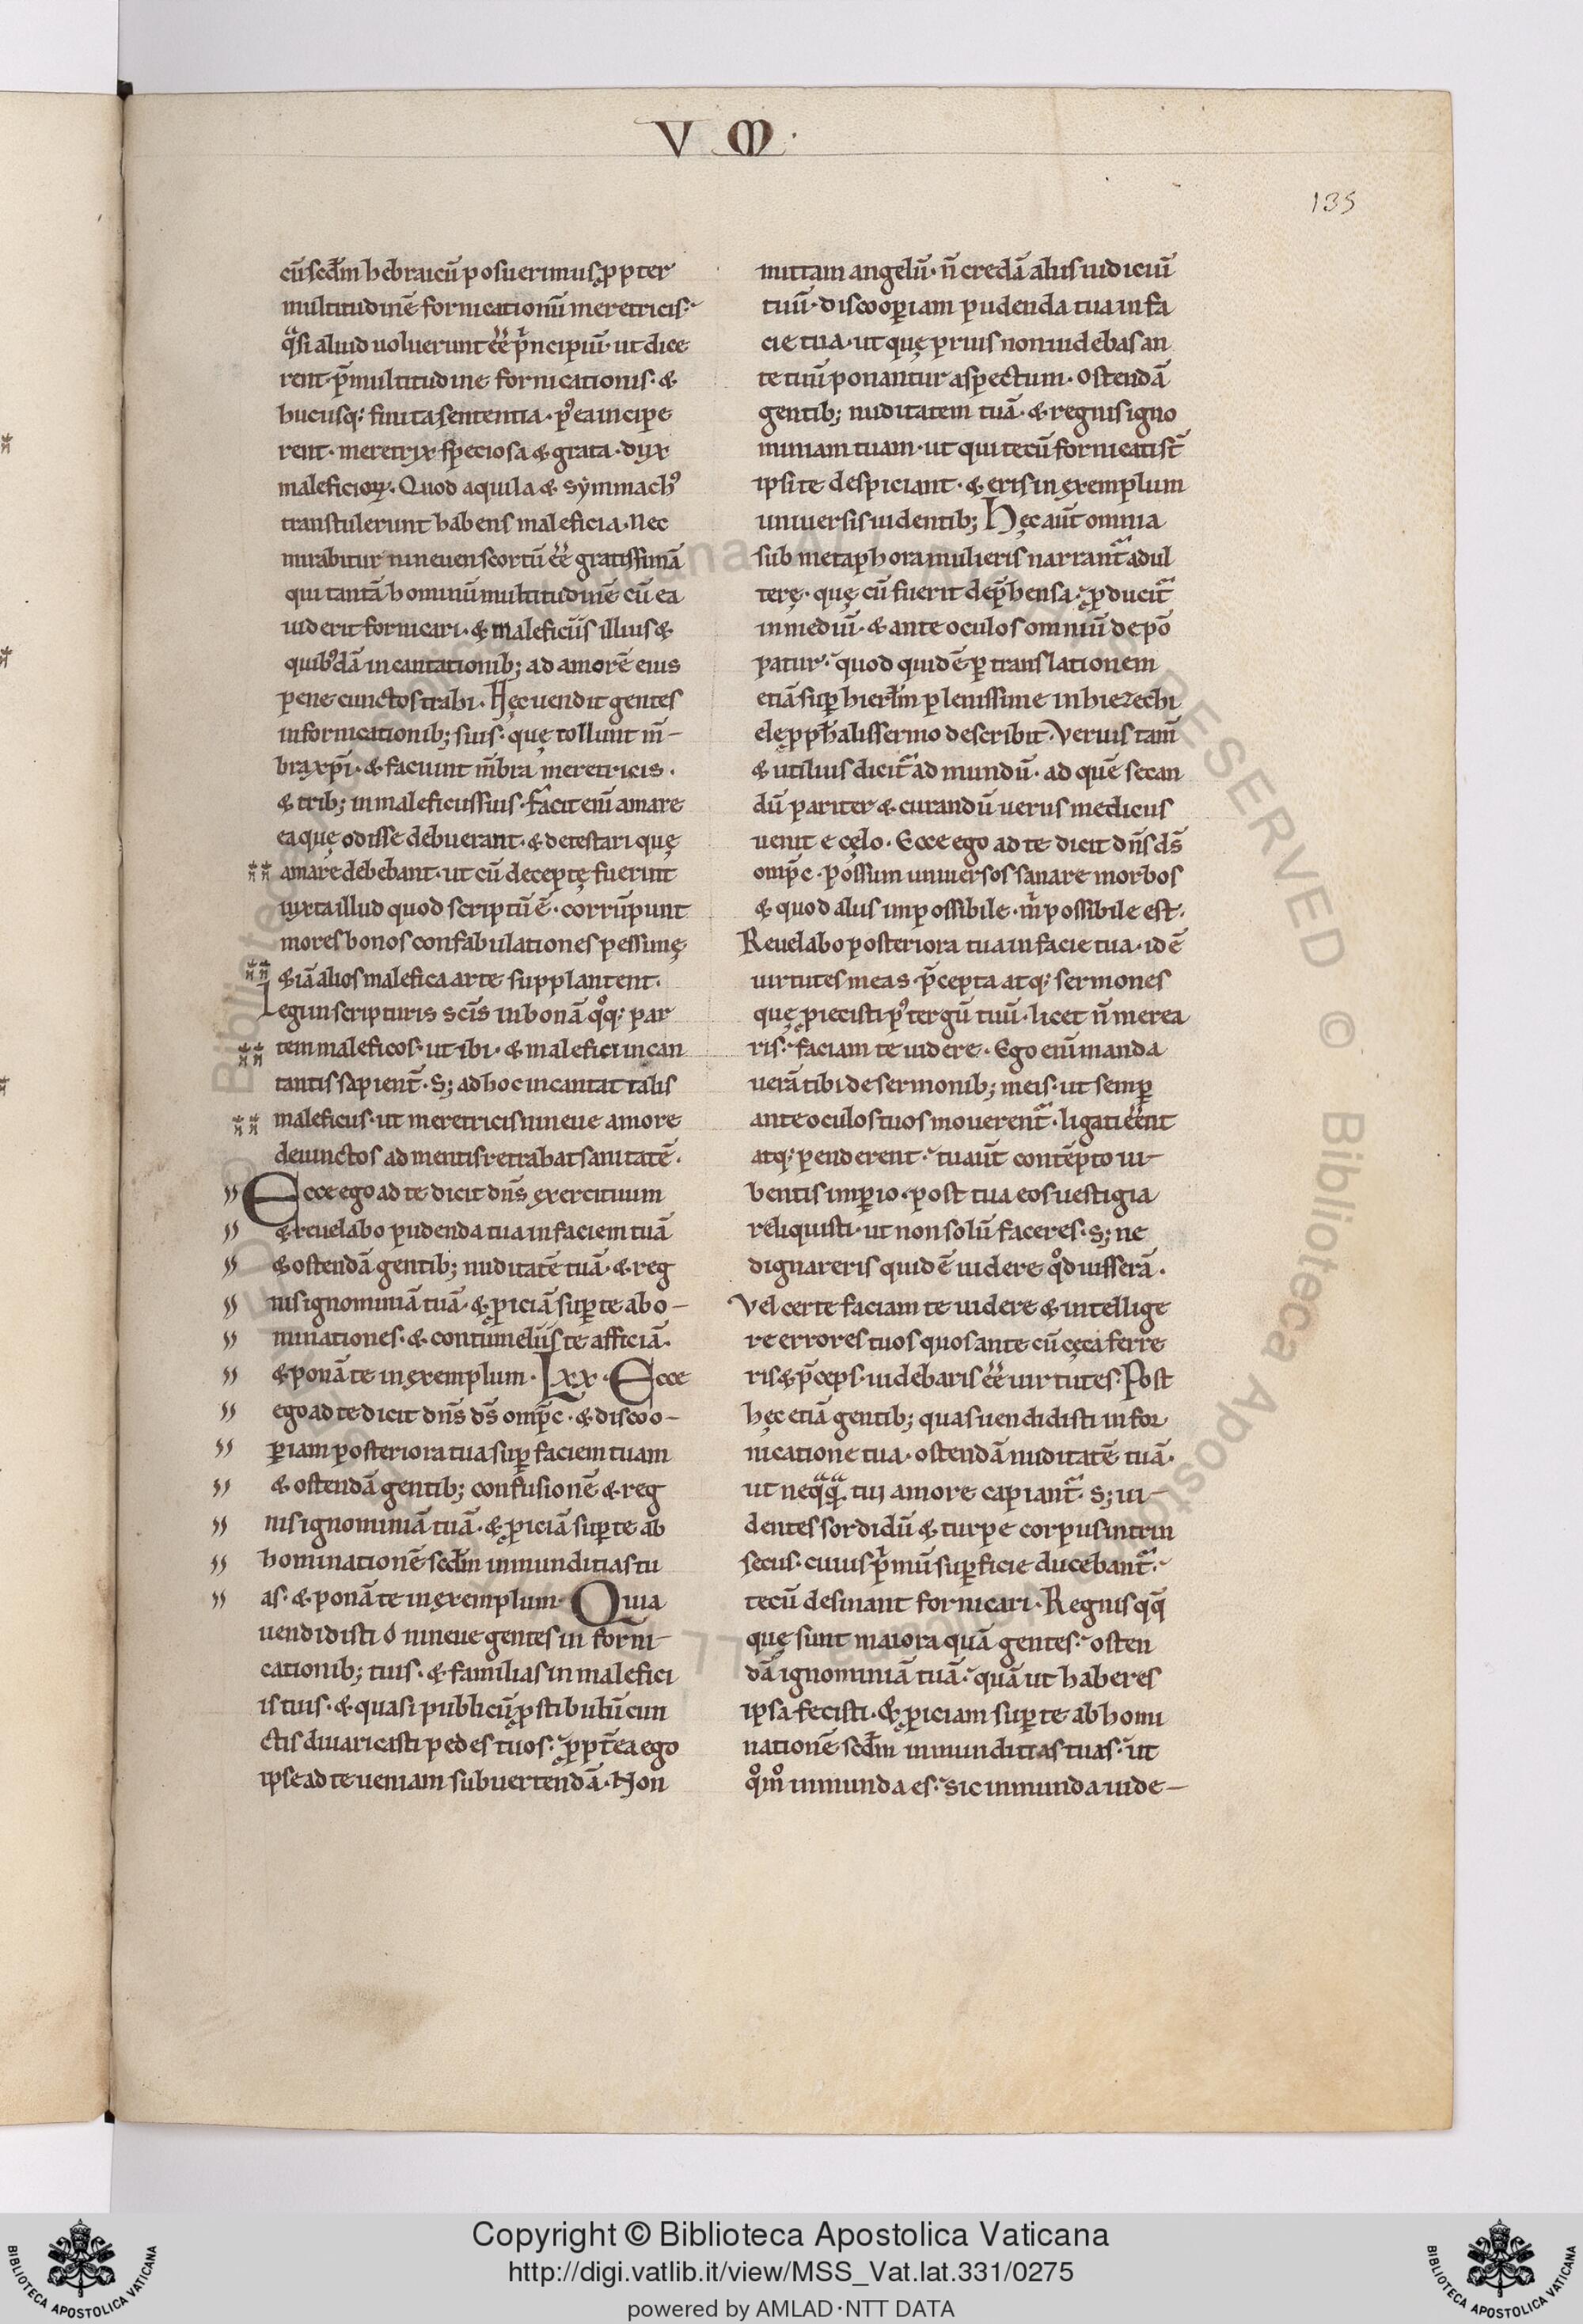 V M
135
cū scdm hebraicū posuerimus, ꝓpter
multitudinē fornicationū meretricis.
qͣsi aliud uoluerunt ēē pͥncipiū. ut dice
rent. p̄ multitudine fornicationis. &
hucusq; finita sententia. pꝰea incipe
rent. meretrix speciosa & grata. dux
maleficioꝝ. Quod aquila & symmachꝰ
transtulerunt habens maleficia. Nec
mirabitur nineuen scortū ēē gratissimā
qui tantā hominū multitudinē cū ea
uiderit fornicari. & maleficiis illius &
quibꝰdā incantationib; ad amorē eius
pene cunctos trahi. Hęc uendit gentes
in fornicationib; suis. quę tollunt m̄-
bra xp̄i. & faciunt m̄bra meretricis.
& trib; in maleficiis suis. facit eni amare
ea quę odisse debuerant. & detestari quę
amare debebant. ut cū deceptę fuerint
iuxta illud quod scriptū ē. corrūpunt
mores bonos confabulationes pessimę
&iā alios malefica arte supplantent.
Legi in scripturis scīs in bonā qͦq; par
tem maleficos. ut ibi. & malefici incan
tantis sapient̄. S; ad hoc incantat talis
maleficus. ut meretricis nineue amore
deuinctos ad mentis retrahat sanitatē.
Ecce ego ad te dicit dn̄s exercituum
& reuelabo pudenda tua in faciem tuā
& ostendā gentib; nuditatē tuā. & reg
nis ignominiā tuā. & ꝓiciā suꝑ te abo-
minationes. & contumeliis te afficiā.
& ponā te in exemplum. Lxx. Ecce
ego ad te dicit dn̄s ds̄ omp̄c. & discoo-
ꝑiam posteriora tua suꝑ faciem tuam
& ostendā gentib; confusionē & reg
nis ignominiā tuā. & ꝓiciā suꝑ te ab
hominationē scdm inmunditias tu
as. & ponā te in exemplum. Quia
uendidisti o nineue gentes in forni-
cationib; tuis. & familias in malefici
is tuis. & quasi publicū ꝓstibulū cun
ctis diuaricasti pedes tuos. ꝓpt̄ea ego
ipse ad te ueniam subuertendā. Non
mittam angelū. n̄ credā aliis iudiciū
tuū. discooꝑiam pudenda tua in fa
cie tua. ut quę prius non uidebas an
te tuū ponantur aspectum. Ostendā
gentib; nuditatem tuā. & regnis igno
miniam tuam. ut qui tecū fornicati st̄
ipsi te despiciant. & eris in exemplum
uniuersis uidentib; Hęc aut̄ omnia
sub metaphora mulieris narrant̄ adul
terę. quę cū fuerit dep̄hensa. ꝓducit̄
in mediū. & ante oculos omniū depō
patur. quod quidē ꝑ translationem
etiā suꝑ hierl̄m plenissime in hiezechi
ele ꝓph̄alis sermo describit. Verius tam̄
& utilius dicit̄ ad mundū. ad quē secan
dū pariter & curandū uerus medicus
uenit e cęlo. Ecce ego ad te dicit dn̄s ds̄
omp̄c. possum uniuersos sanare morbos
& quod aliis impossibile. mͥ possibile est.
Reuelabo posteriora tua in facie tua. id ē
uirtutes meas p̄cepta atq; sermones
quę ꝓiecisti pꝰ tergū tuū. licet n̄ merea
ris. faciam te uidere. Ego eni manda
uerā tibi de sermonib; meis. ut semꝑ
ante oculos tuos mouerent̄. ligati ēēnt
atq; penderent. tu aut̄ contēpto iu-
bentis imꝑio. post tua eos uestigia
reliquisti. ut non solū faceres. S; ne
dignareris quidē uidere qͦd iusserā.
Vel certe faciam te uidere & intellige
re errores tuos quos ante cū cęca ferre
ris & p̄ceps. uidebaris ēē uirtutes. Post
hęc etiā gentib; quas uendidisti in for
nicatione tua. ostendā nuditatē tuā.
ut neqͣqͣ. tui amore capiant̄. S; ui-
dentes sordidū & turpe corpus intrin
secus. cuius pͥmū suꝑficie ducebant̄.
tecū desinant fornicari. Regnis qq̄
quę sunt maiora quā gentes. osten
dā ignominiā tuā. quā ut haberes
ipsa fecisti. & ꝓiciam suꝑ te abhomi
nationē scdm inmunditias tuas. ut
qͦmͦ inmunda es. sic inmunda uide-
Copyright © Biblioteca Apostolica Vaticana
http://digi.vatlib.it/view/MSS_Vat.lat.331/0275
powered by AMLAD·NTT DATA
BIBLIOTECA APOSTOLICA VATICANA
BIBLIOTECA APOSTOLICA VATICANA